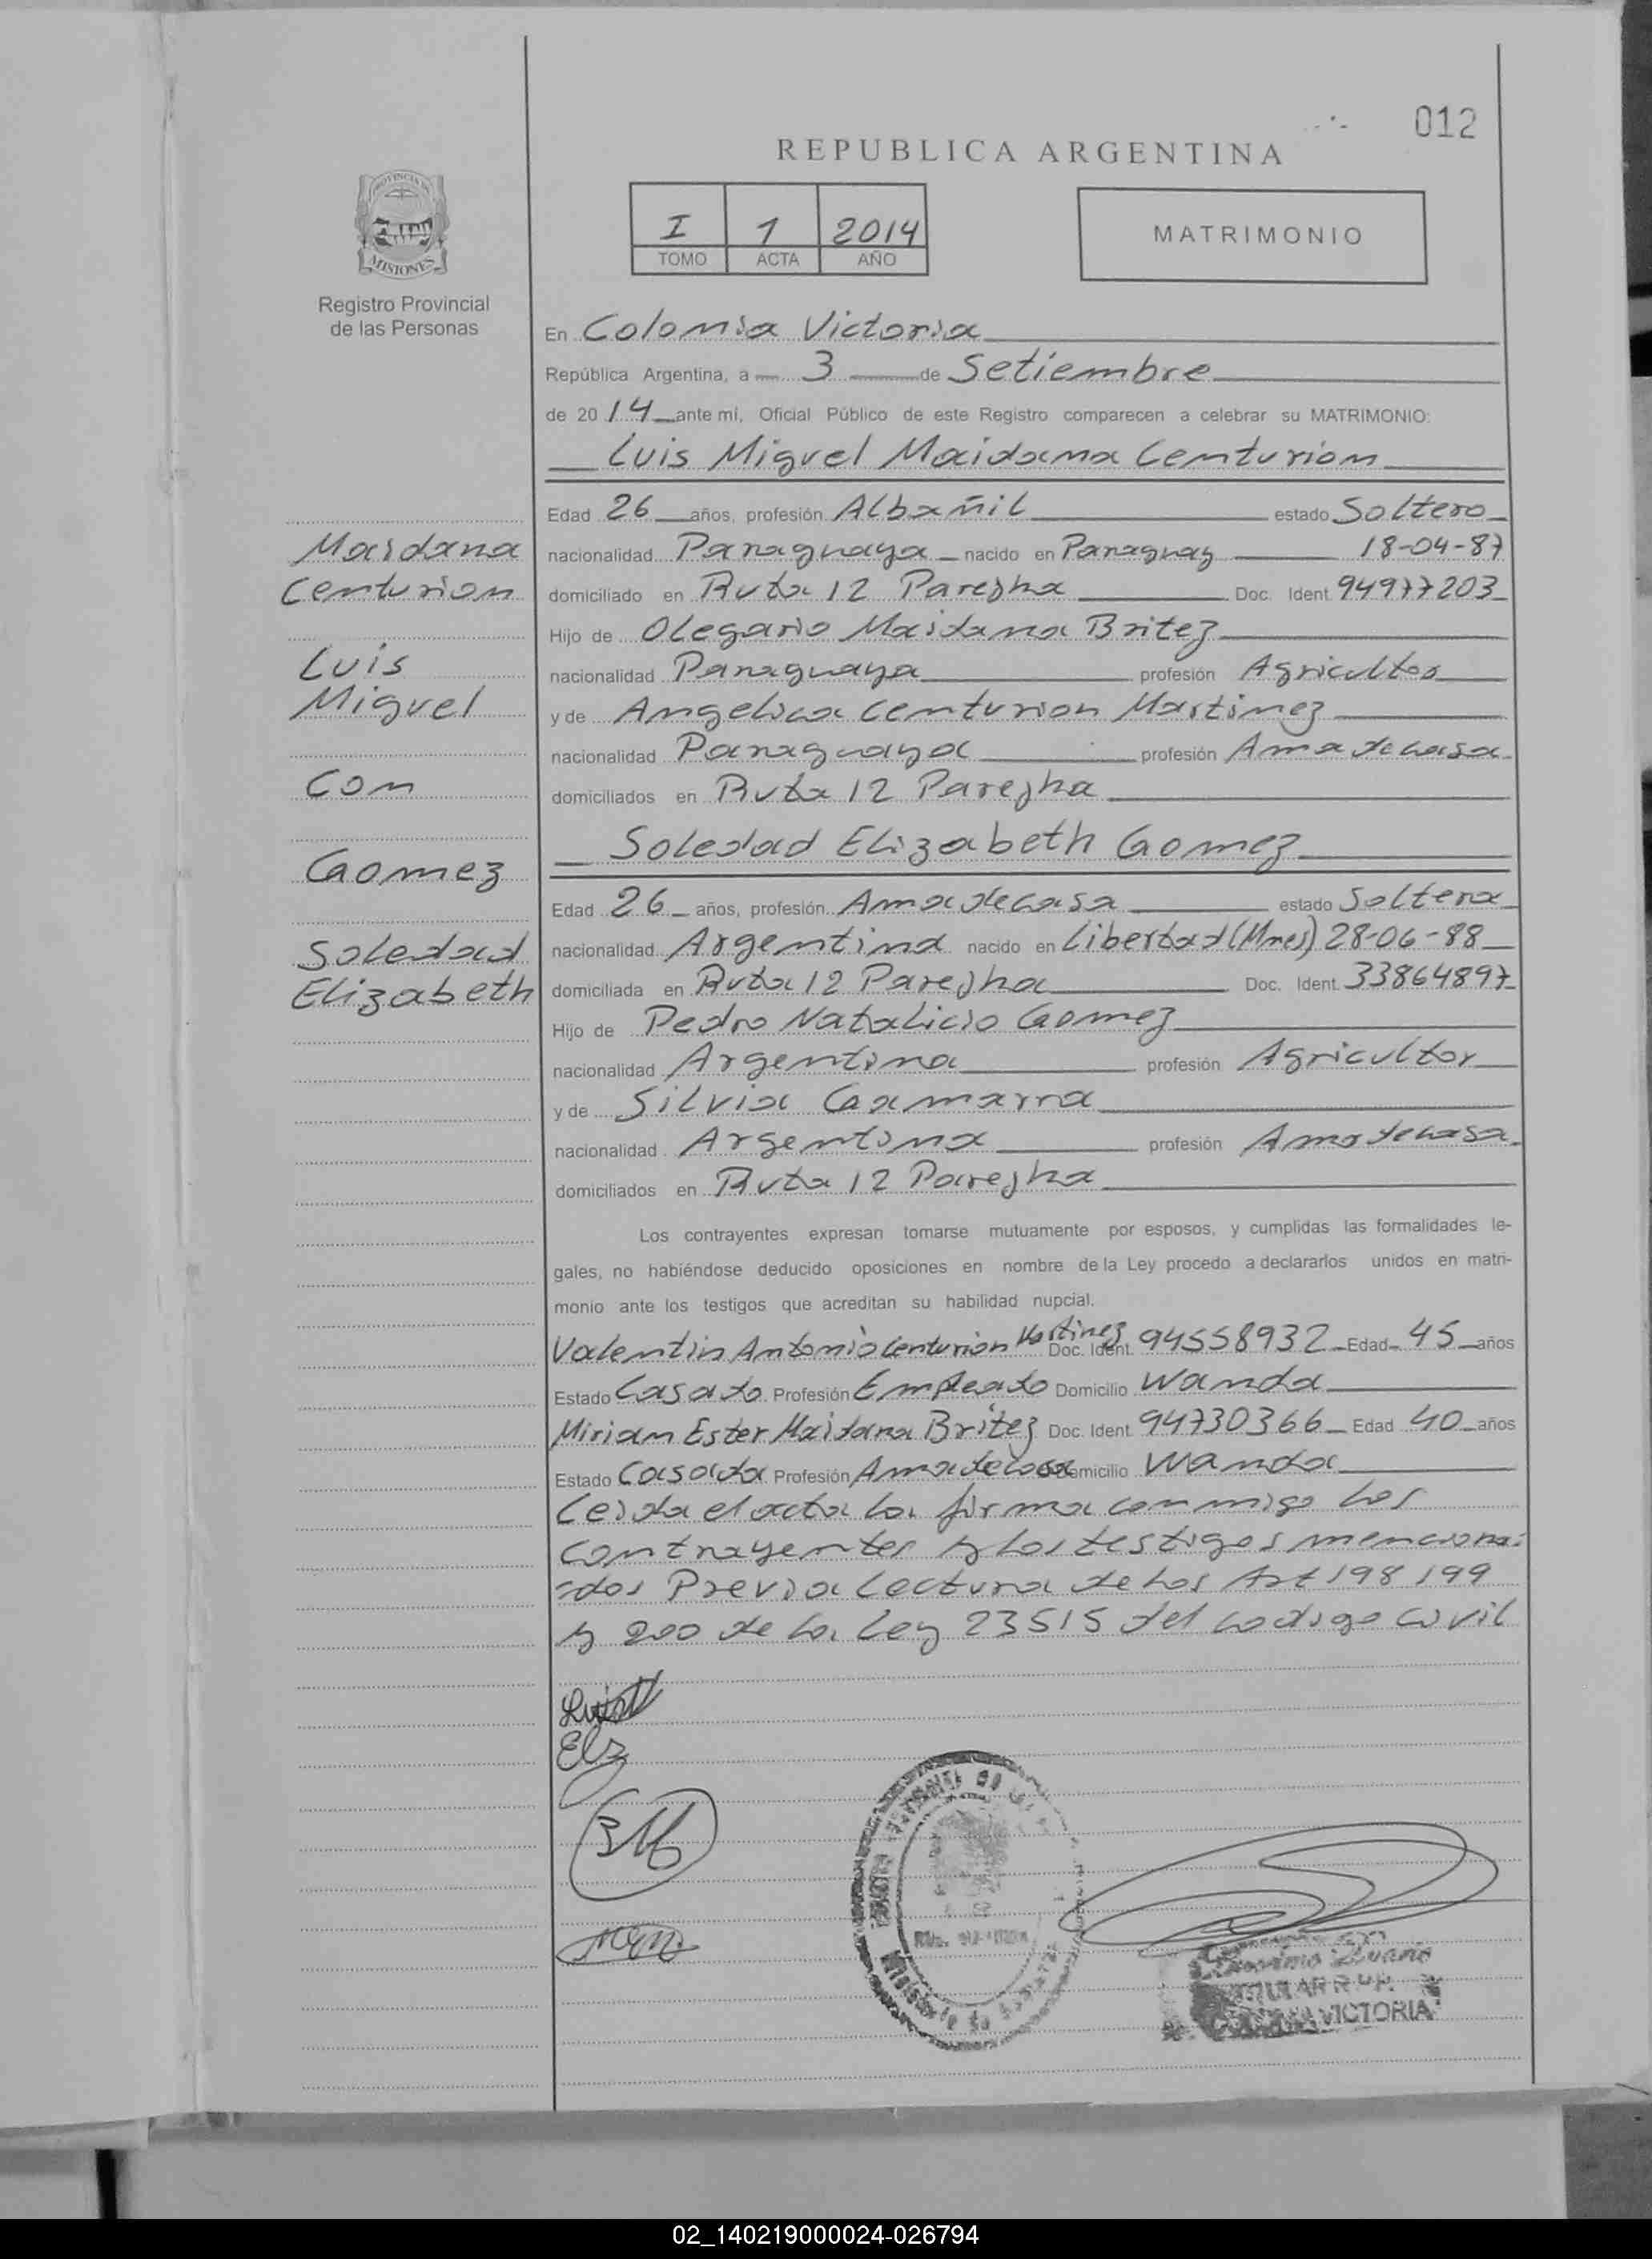 012
REPUBLICA ARGENTINA
I 1 2014
TOMO ACTA AÑO
MATRIMONIO
PROVINCIA DE
MISIONES
Registro Provincial
de las Personas
En Colonia Victoria
República Argentina, a 3 de Setiembre
de 20 14 ante mí, Oficial Público de este Registro comparecen a celebrar su MATRIMONIO:
Luis Miguel Maidana Centurion
Edad 26 años, profesión Albañil estado Soltero
nacionalidad Paraguaya nacido en Paraguay 18-04-87
domiciliado en Ruta 12 Parejha Doc. Ident. 94977203
Hijo de Olegario Maidana Britez
nacionalidad Paraguaya profesión Agricultor
y de Angelica Centurion Martinez
nacionalidad Paraguaya profesión Ama de casa
domiciliados en Ruta 12 Parejha
Soledad Elizabeth Gomez
Edad 26 años, profesión Ama de casa estado Soltera
nacionalidad Argentina nacido en Libertad (Mnes) 28-06-88
domiciliada en Ruta 12 Parejha Doc. Ident. 33864897
Hijo de Pedro Natalicio Gomez
nacionalidad Argentina profesión Agricultor
y de Silvia Gamarra
nacionalidad Argentina profesión Ama de casa
domiciliados en Ruta 12 Parejha
Maidana
Centurion
Luis
Miguel
Con
Gomez
Soledad
Elizabeth
Los contrayentes expresan tomarse mutuamente por esposos, y cumplidas las formalidades le-
gales, no habiéndose deducido oposiciones en nombre de la Ley procedo a declararlos unidos en matri-
monio ante los testigos que acreditan su habilidad nupcial.
Valentin Antonio Centurion Martinez Doc. Ident. 94558932 Edad 45 años
Estado Casado Profesión Empleado Domicilio Wanda
Miriam Ester Maidana Britez Doc. Ident. 94730366 Edad 40 años
Estado Casada Profesión Ama de casa Domicilio Wanda
Leida el acta la firma conmigo los
contrayentes y los testigos menciona-
dos Previa lectura de los Art 198 199
y 200 de la Ley 23515 del codigo civil
TITULAR R.P.P.
COLONIA VICTORIA
02_140219000024-026794